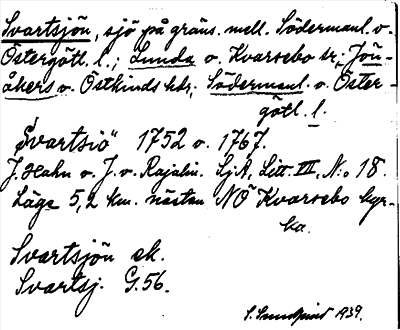 Svartsjön, sjö på gräns. mell. Södermanl. o.
Östergötl. l.; Lunda o. Kvarsebo sr; Jön-
åkers o. Östkinds hdr; Södermanl. o. Öster-
götl. l.
"Svartsiö" 1752 o. 1767.
J. Hahn o. J. v. Rajalin. Sj.A, Litt. III, N:o 18.
Läge 5,2 km. nästan NO Kvarsebo kyr-
ka.
Svartsjön ek.
Svartsj. G.56.
S. Sundqvist 1939.